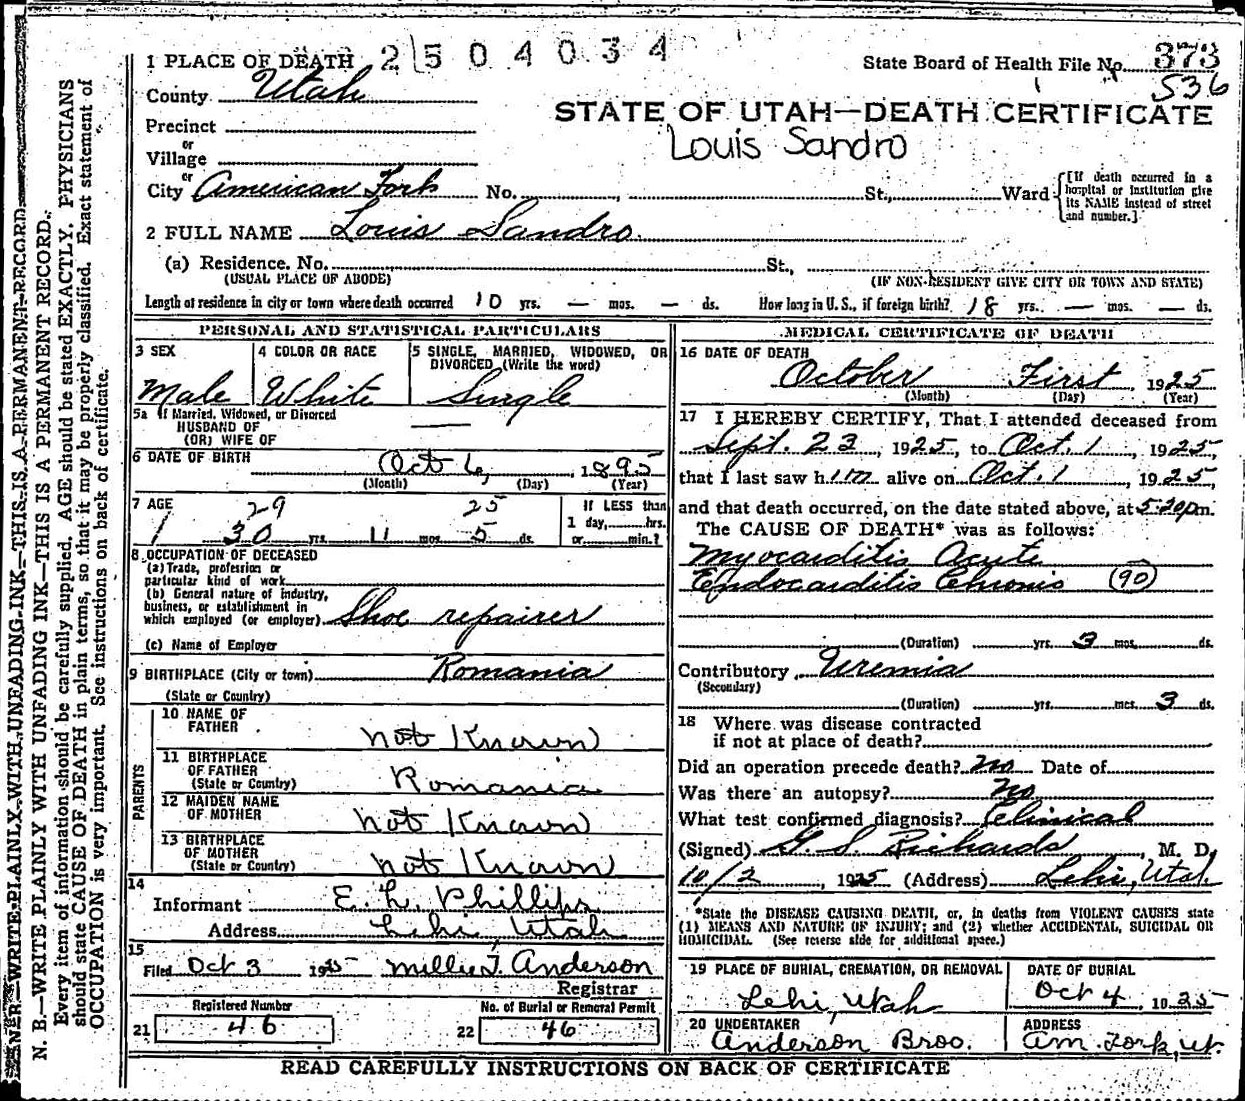 1 PLACE OF DEATH 2504034
State Board of Health File No. 373
536
County Utah
STATE OF UTAH—DEATH CERTIFICATE
Precinct
Louis Sandro
or
Village
or
City American Fork No. St., Ward
[If death occurred in a hospital or institution give its NAME instead of street and number.]
2 FULL NAME Louis Sandro
(a) Residence. No. St.,
(USUAL PLACE OF ABODE) (IF NON-RESIDENT GIVE CITY OR TOWN AND STATE)
Length of residence in city or town where death occurred 10 yrs. — mos. — ds. How long in U. S., if foreign birth? 18 yrs. — mos. — ds.
PERSONAL AND STATISTICAL PARTICULARS
3 SEX
Male
4 COLOR OR RACE
White
5 SINGLE, MARRIED, WIDOWED, OR
DIVORCED (Write the word)
Single
5a If Married, Widowed, or Divorced
HUSBAND OF
(OR) WIFE OF
6 DATE OF BIRTH Oct 6, 1895
(Month) (Day) (Year)
7 AGE 29 25
30 yrs. 11 mos. 5 ds.
If LESS than
1 day, hrs.
or min.?
8 OCCUPATION OF DECEASED
(a) Trade, profession or
particular kind of work
(b) General nature of industry,
business, or establishment in
which employed (or employer) Shoe repairer
(c) Name of Employer
9 BIRTHPLACE (City or town) Romania
(State or Country)
PARENTS
10 NAME OF
FATHER not Known
11 BIRTHPLACE
OF FATHER
(State or Country) Romania
12 MAIDEN NAME
OF MOTHER not Known
13 BIRTHPLACE
OF MOTHER
(State or Country) not Known
14
Informant E. L. Phillips
Address Lehi Utah
15
Filed Oct 3 1925 Millie T. Anderson
Registrar
Registered Number
21 46
No. of Burial or Removal Permit
22 46
MEDICAL CERTIFICATE OF DEATH
16 DATE OF DEATH
October First, 1925
(Month) (Day) (Year)
17 I HEREBY CERTIFY, That I attended deceased from
Sept. 23, 1925, to Oct. 1, 1925,
that I last saw him alive on Oct. 1, 1925,
and that death occurred, on the date stated above, at 5:20pm.
The CAUSE OF DEATH* was as follows:
Myocarditis Acute
Endocarditis Chronic (90)
(Duration) yrs. 3 mos. ds.
Contributory Uremia
(Secondary)
(Duration) yrs. mos. 3 ds.
18 Where was disease contracted
if not at place of death?
Did an operation precede death? no Date of
Was there an autopsy? no
What test confirmed diagnosis? Clinical
(Signed) G. S. Richards, M. D.
10/2, 1925 (Address) Lehi, Utah.
*State the DISEASE CAUSING DEATH, or, in deaths from VIOLENT CAUSES state
(1) MEANS AND NATURE OF INJURY; and (2) whether ACCIDENTAL, SUICIDAL OR
HOMICIDAL. (See reverse side for additional space.)
19 PLACE OF BURIAL, CREMATION, OR REMOVAL
Lehi, Utah
DATE OF BURIAL
Oct 4, 1925
20 UNDERTAKER
Anderson Bros.
ADDRESS
Am. Fork, Ut.
READ CAREFULLY INSTRUCTIONS ON BACK OF CERTIFICATE
WRITE PLAINLY WITH UNFADING INK—THIS IS A PERMANENT RECORD
N. B.—WRITE PLAINLY WITH UNFADING INK—THIS IS A PERMANENT RECORD.
Every item of information should be carefully supplied. AGE should be stated EXACTLY. PHYSICIANS
should state CAUSE OF DEATH in plain terms, so that it may be properly classified. Exact statement of
OCCUPATION is very important. See instructions on back of certificate.